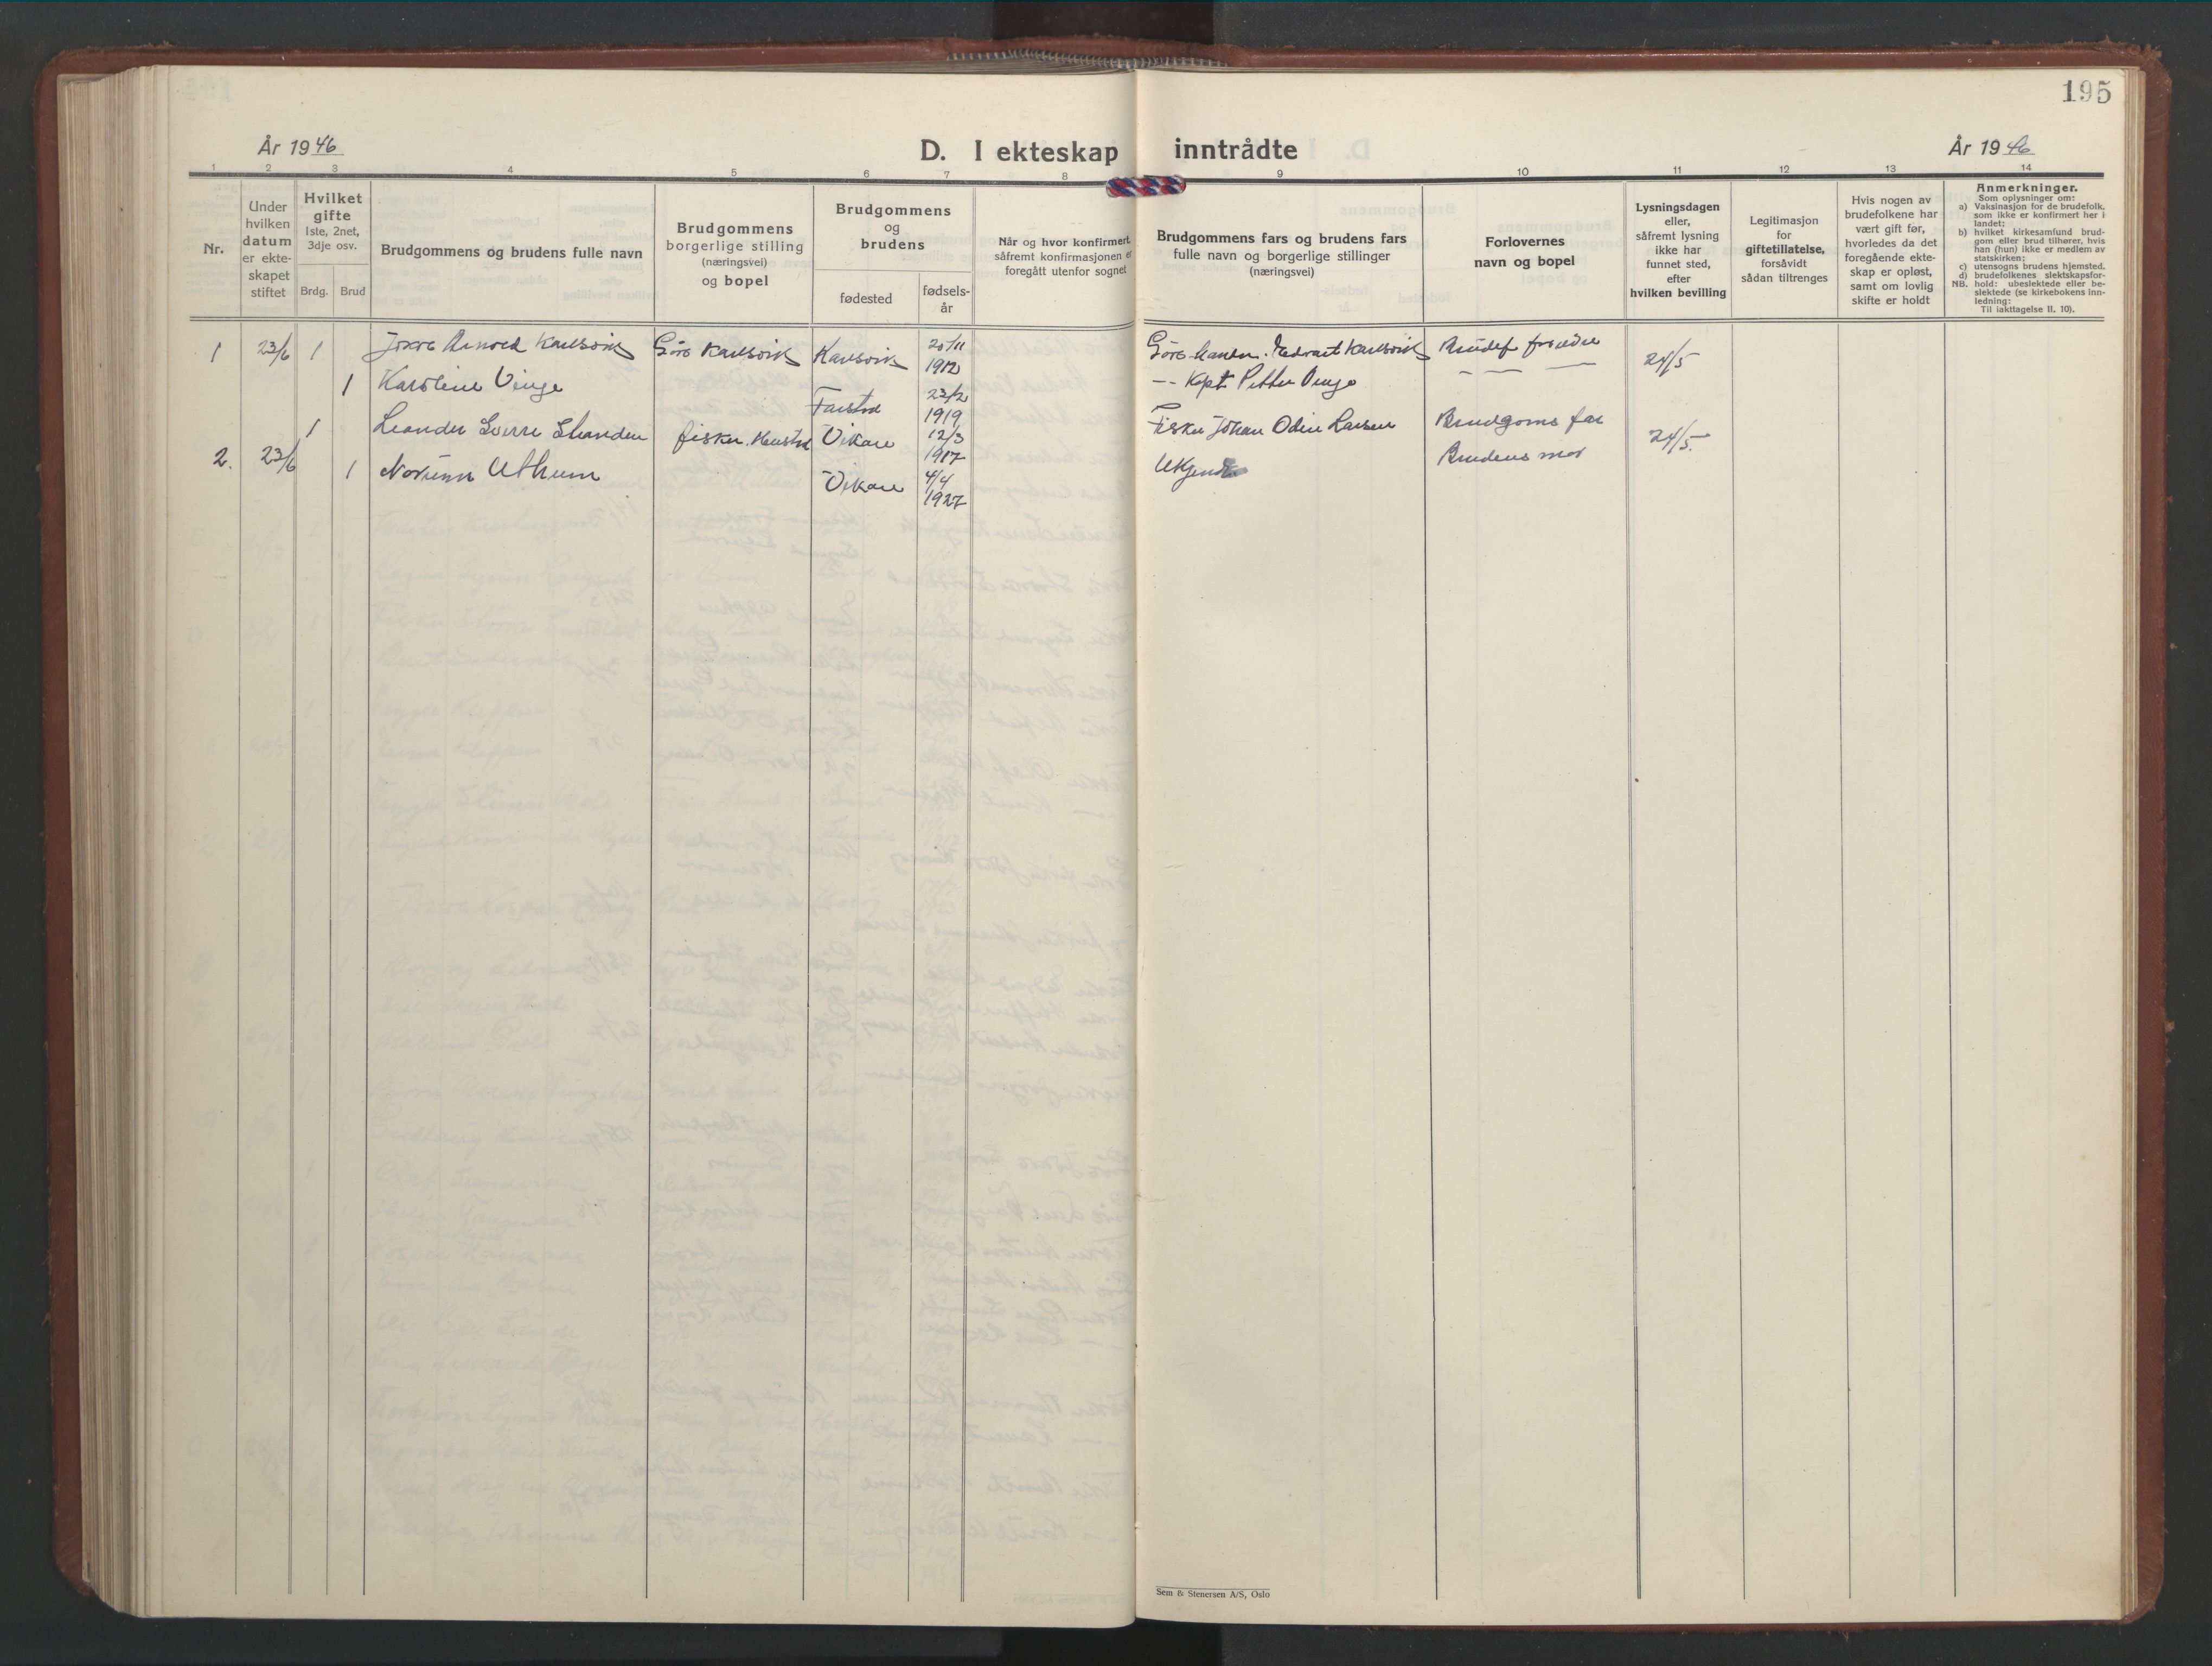 195
År 1946
D. I ekteskap inntrådte
År 1946
1 2 3 4 5 6 7 8 9 10 11 12 13 14
Nr.
Under
hvilken
datum
er ekte-
skapet
stiftet
Hvilket
gifte
1ste, 2net,
3dje osv.
Brdg. Brud
Brudgommens og brudens fulle navn
Brudgommens
borgerlige stilling
(næringsvei)
og bopel
Brudgommens
og
brudens
fødested
fødsels-
år
Når og hvor konfirmert,
såfremt konfirmasjonen er
foregått utenfor sognet
Brudgommens fars og brudens fars
fulle navn og borgerlige stillinger
(næringsvei)
Forlovernes
navn og bopel
Lysningsdagen
eller,
såfremt lysning
ikke har
funnet sted,
efter
hvilken bevilling
Legitimasjon
for
giftetillatelse,
forsåvidt
sådan tiltrenges
Hvis nogen av
brudefolkene har
vært gift før,
hvorledes da det
foregående ekte-
skap er opløst,
samt om lovlig
skifte er holdt
Anmerkninger.
Som oplysninger om:
a) Vaksinasjon for de brudefolk,
som ikke er konfirmert her i
landet;
b) hvilket kirkesamfund brud-
gom eller brud tilhører, hvis
han (hun) ikke er medlem av
statskirken;
c) utensogns brudens hjemsted.
d) brudefolkenes slektskapsfor-
NB. hold: ubeslektede eller be-
slektede (se kirkebokens inn-
ledning:
Til iakttagelse II. 10).
1 23/6 1 Karlsvik Karlsvik Karlsvik 20/11 1912 Karlsvik 24/5
1 Karoline Vinge Farstad 23/2 1919 Petter Vinge
1 Leander Sverre Stranden fisker Vikan 12/3 1917 Fisker Johan Odin Larsen Brudgoms far
2. 23/6 1 Uthun Vikan 4/4 1927 Ukjendt Brudens mor 24/5.
Sem & Stenersen A/S, Oslo